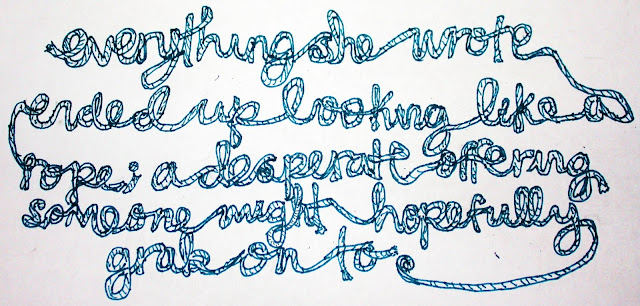 everything she wrote
ended up looking like a
rope; a desperate offering
someone might hopefully
grab on to.